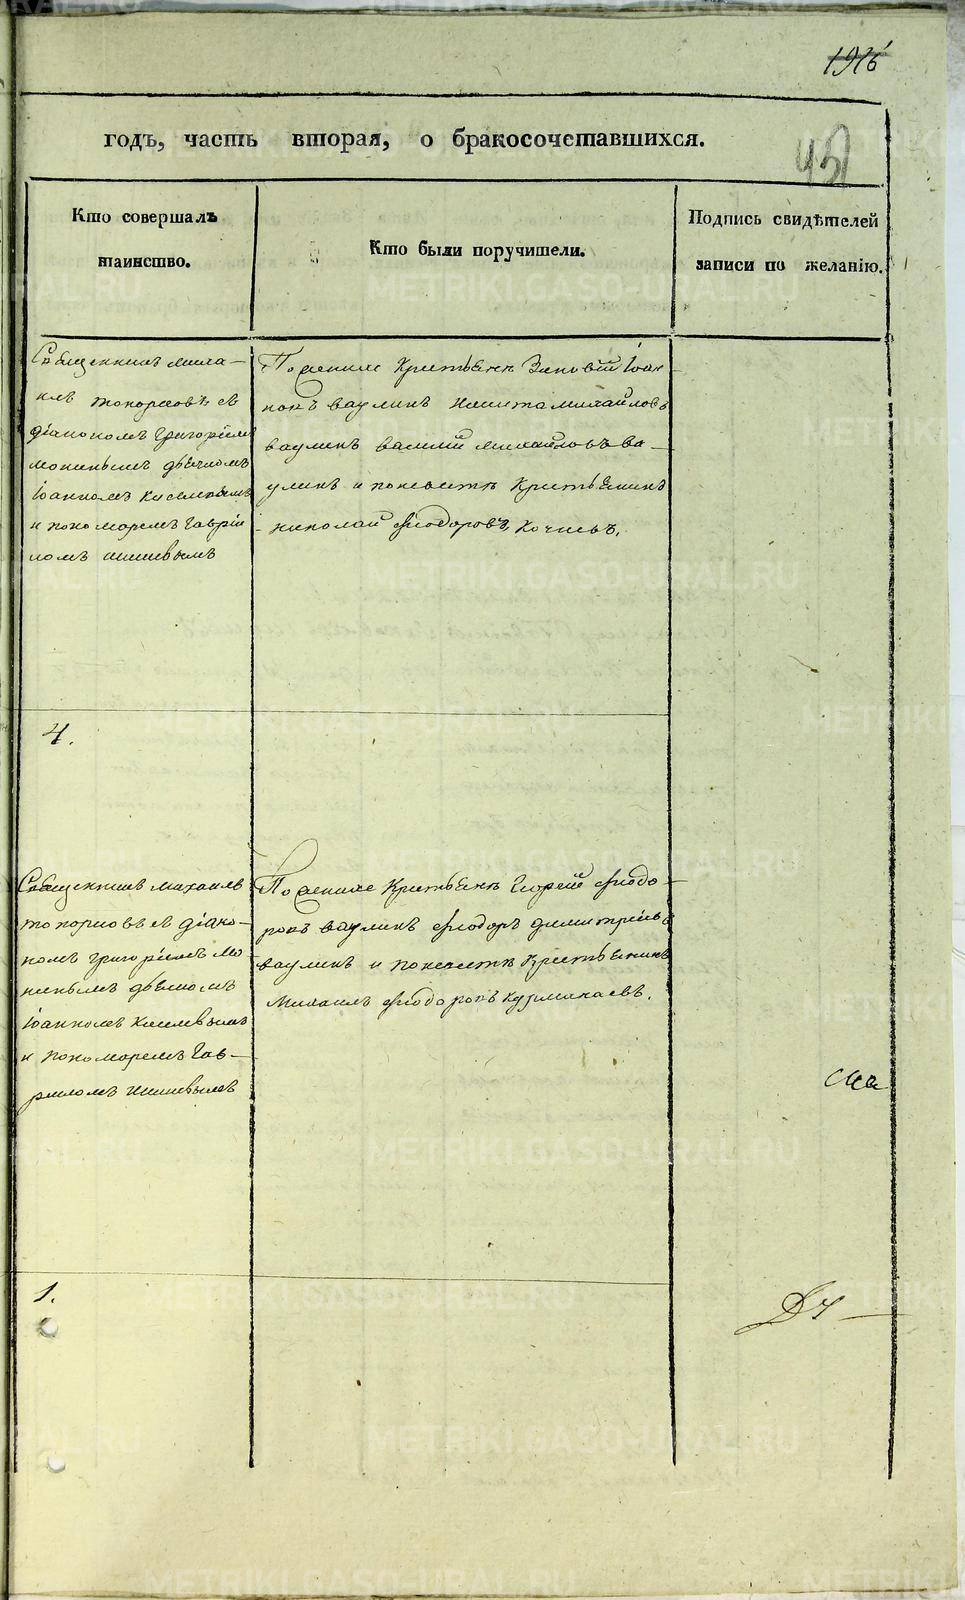 1916
45
годъ, часть вторая, о бракосочетавшихся.
Кто совершалъ
таинство.
Кто были поручители.
Подпись свидѣтелей
записи по желанію.
Священникъ Миха-
илъ Топорковъ съ
діакономъ Григоріемъ
дьячкомъ
Іоанномъ Киселевымъ
и пономаремъ Гаврі
ломъ Шишевымъ
По женихе Крестьяне Зиновій Іоан
новъ Ваулинъ Никита Михайловъ
Ваулинъ Василій Михайловъ Ва-
улинъ и по невѣсте Крестьянинъ
Николай Ѳиодоровъ Кочневъ.
4.
Священникъ Михаилъ
Топорковъ съ діако-
номъ Григоріемъ Мо
дьячкомъ
Іоанномъ Киселевымъ
и пономаремъ Гав-
риломъ Шишевымъ
По женихе Крестьяне Георгій Ѳиодо-
ровъ Ваулинъ Ѳиодоръ Димитріевъ
Ваулинъ и по невѣсте Крестьянинъ
Михаилъ Ѳиодоровъ Курманаевъ.
1.
METRIKI.GASO-URAL.RU